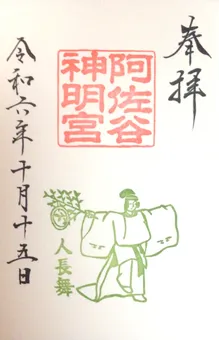 奉拝
阿佐谷
神明宮
人長舞
令和六年十月十五日